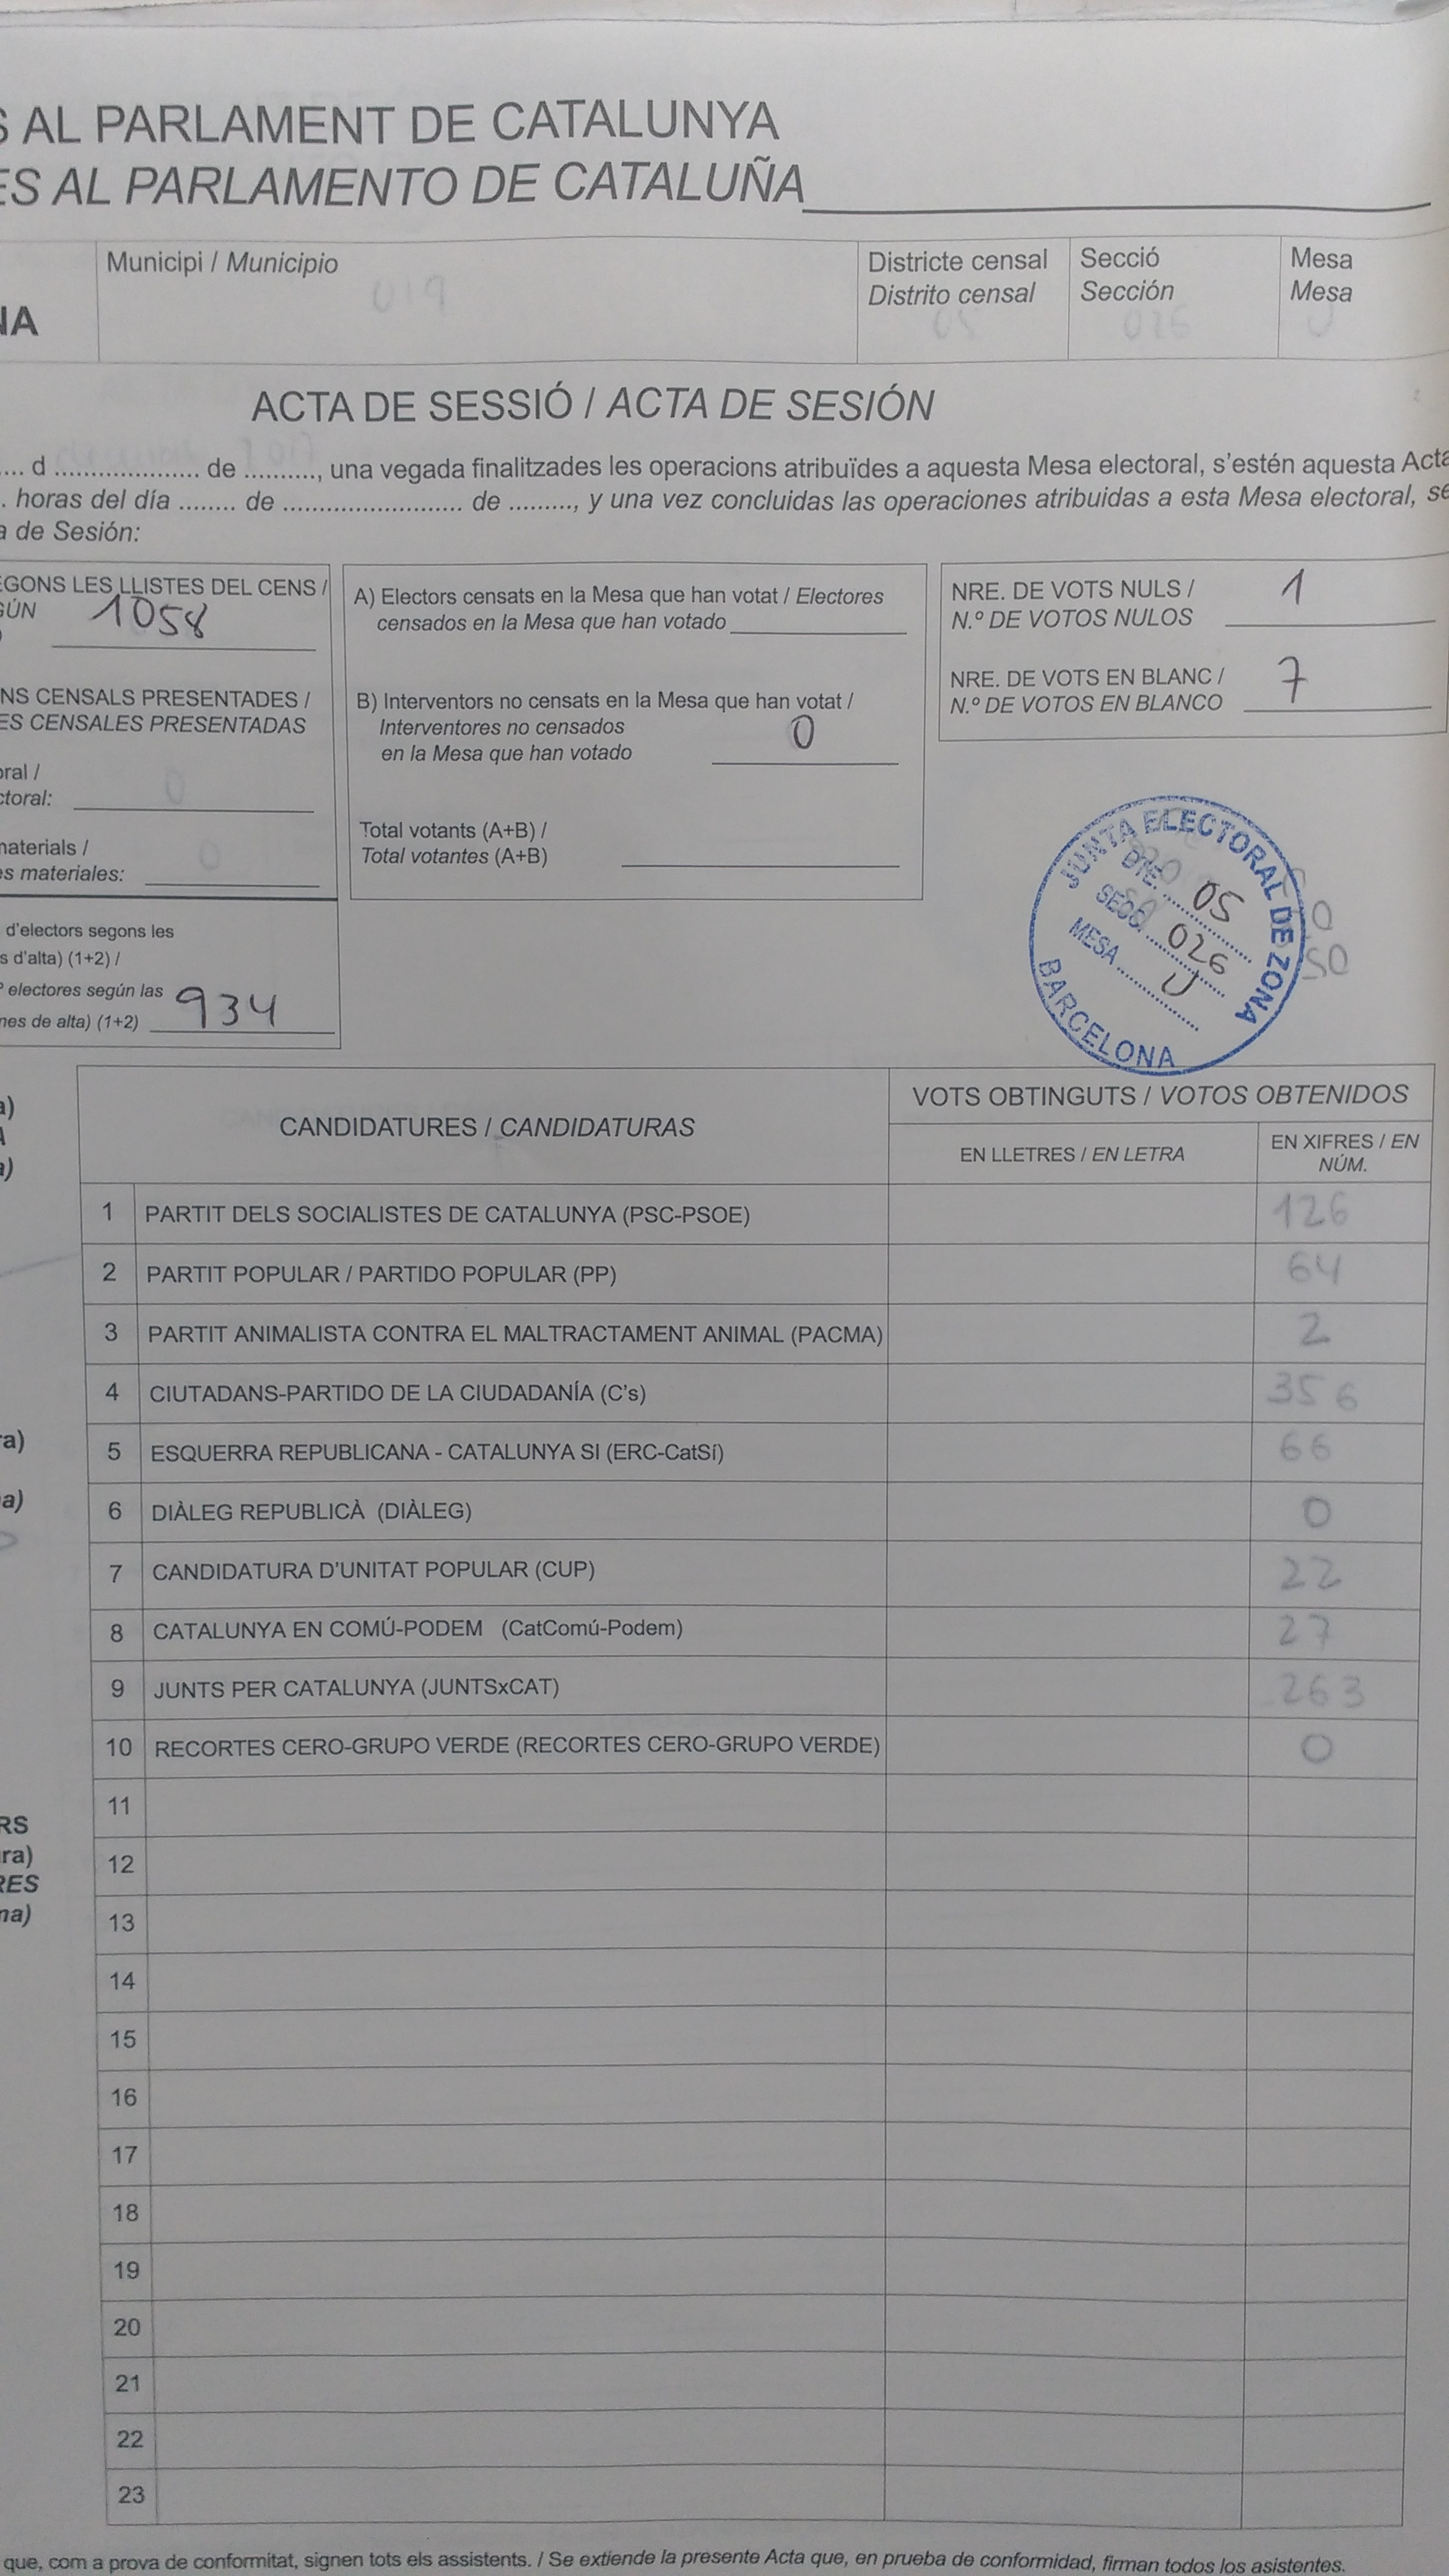 S AL PARLAMENT DE CATALUNYA
ES AL PARLAMENTO DE CATALUÑA
NA
Municipi / Municipio
019
Districte censal
Distrito censal
05
Secció
Sección
026
Mesa
Mesa
U
ACTA DE SESSIÓ / ACTA DE SESIÓN
.... d .................... de .........., una vegada finalitzades les operacions atribuïdes a aquesta Mesa electoral, s'estén aquesta Acta
2017
. horas del día ........ de ......................... de ........., y una vez concluidas las operaciones atribuidas a esta Mesa electoral, se
a de Sesión:
EGONS LES LLISTES DEL CENS /
GÚN 1058
NS CENSALS PRESENTADES /
ES CENSALES PRESENTADAS
oral /
ctoral: 0
materials /
es materiales: 0
d'electors segons les
s d'alta) (1+2) /
º electores según las
nes de alta) (1+2) 934
A) Electors censats en la Mesa que han votat / Electores
censados en la Mesa que han votado
B) Interventors no censats en la Mesa que han votat /
Interventores no censados
en la Mesa que han votado 0
Total votants (A+B) /
Total votantes (A+B)
NRE. DE VOTS NULS /
N.º DE VOTOS NULOS 1
NRE. DE VOTS EN BLANC /
N.º DE VOTOS EN BLANCO 7
JUNTA ELECTORAL DE ZONA
DTE. 05
SECC. 026
MESA U
BARCELONA
a)
a)
ra)
a)
RS
ra)
RES
na)
CANDIDATURES / CANDIDATURAS
VOTS OBTINGUTS / VOTOS OBTENIDOS
EN LLETRES / EN LETRA
EN XIFRES / EN
NÚM.
1 PARTIT DELS SOCIALISTES DE CATALUNYA (PSC-PSOE) 126
2 PARTIT POPULAR / PARTIDO POPULAR (PP) 64
3 PARTIT ANIMALISTA CONTRA EL MALTRACTAMENT ANIMAL (PACMA) 2
4 CIUTADANS-PARTIDO DE LA CIUDADANÍA (C's) 356
5 ESQUERRA REPUBLICANA - CATALUNYA SI (ERC-CatSí) 66
6 DIÀLEG REPUBLICÀ (DIÀLEG) 0
7 CANDIDATURA D'UNITAT POPULAR (CUP) 22
8 CATALUNYA EN COMÚ-PODEM (CatComú-Podem) 27
9 JUNTS PER CATALUNYA (JUNTSxCAT) 263
10 RECORTES CERO-GRUPO VERDE (RECORTES CERO-GRUPO VERDE) 0
11
12
13
14
15
16
17
18
19
20
21
22
23
que, com a prova de conformitat, signen tots els assistents. / Se extiende la presente Acta que, en prueba de conformidad, firman todos los asistentes.